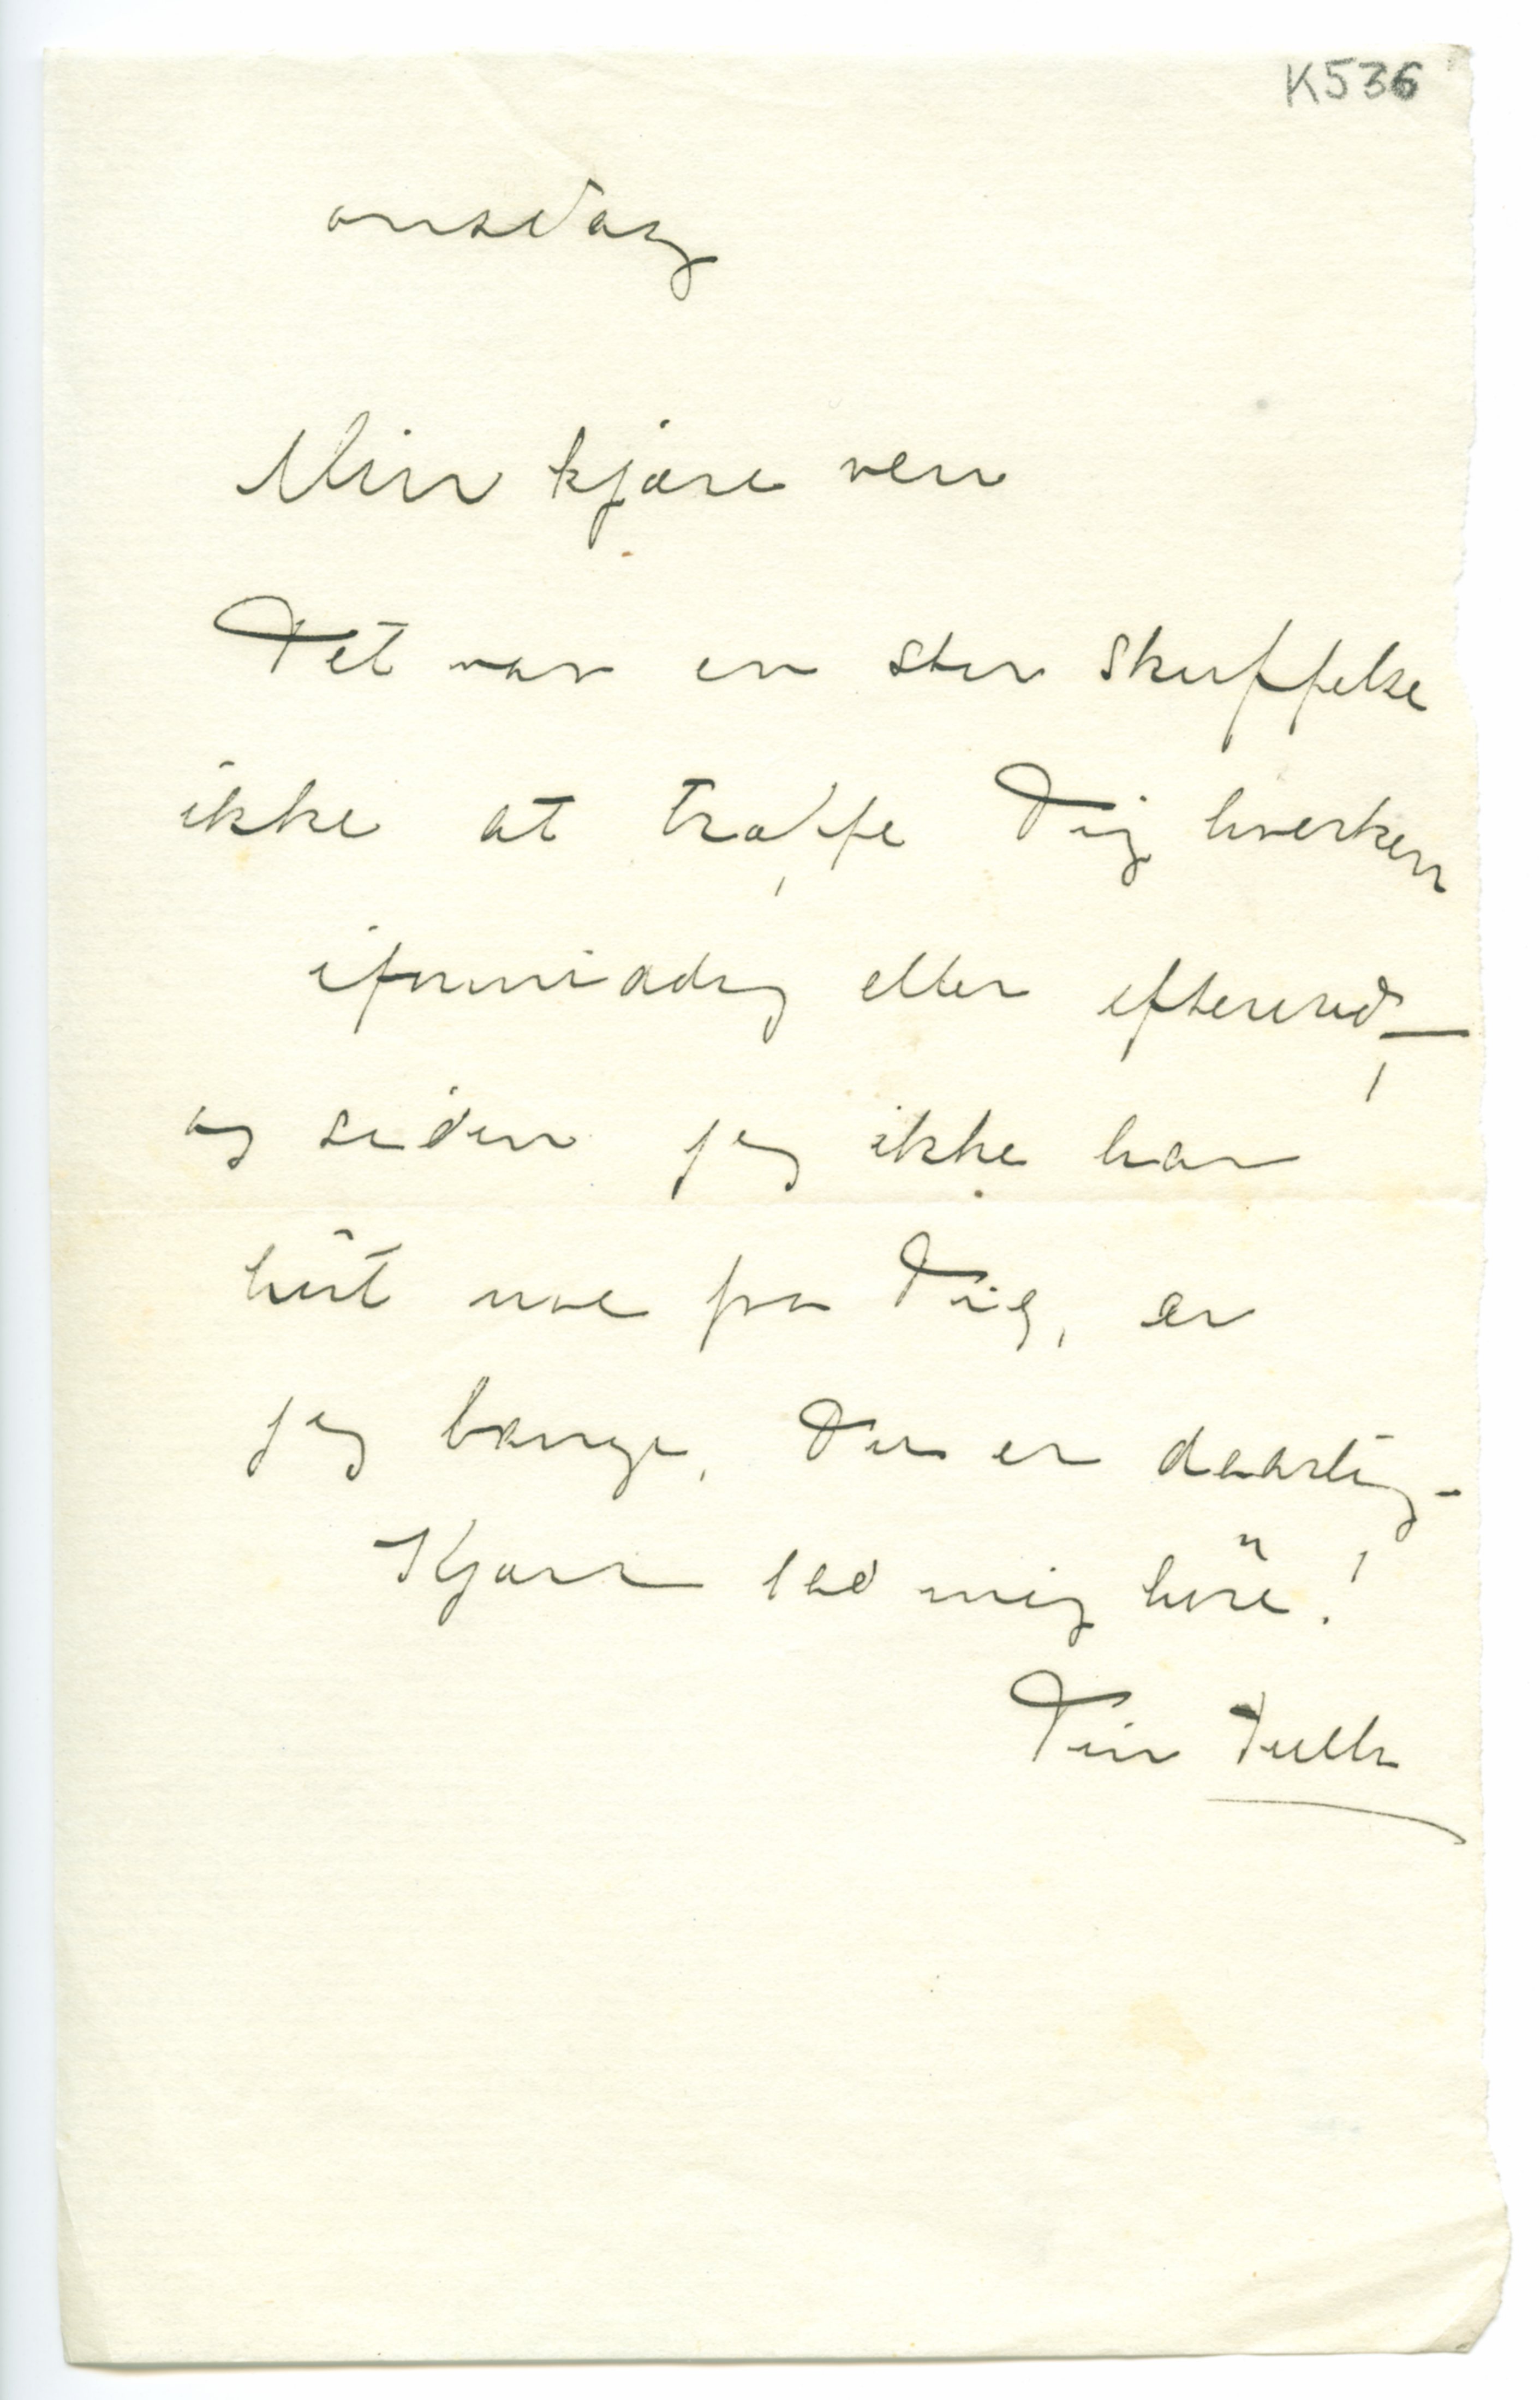 K536
onsdag
Min kjære ven
Det var en stor skuffelse
ikke at træffe Dig hverken
iformiddag eller
og siden jeg ikke har
hört noe fra Dig, er
jeg bange, Du er daarlig –
Kjære lad mig höre!
Din Tulla